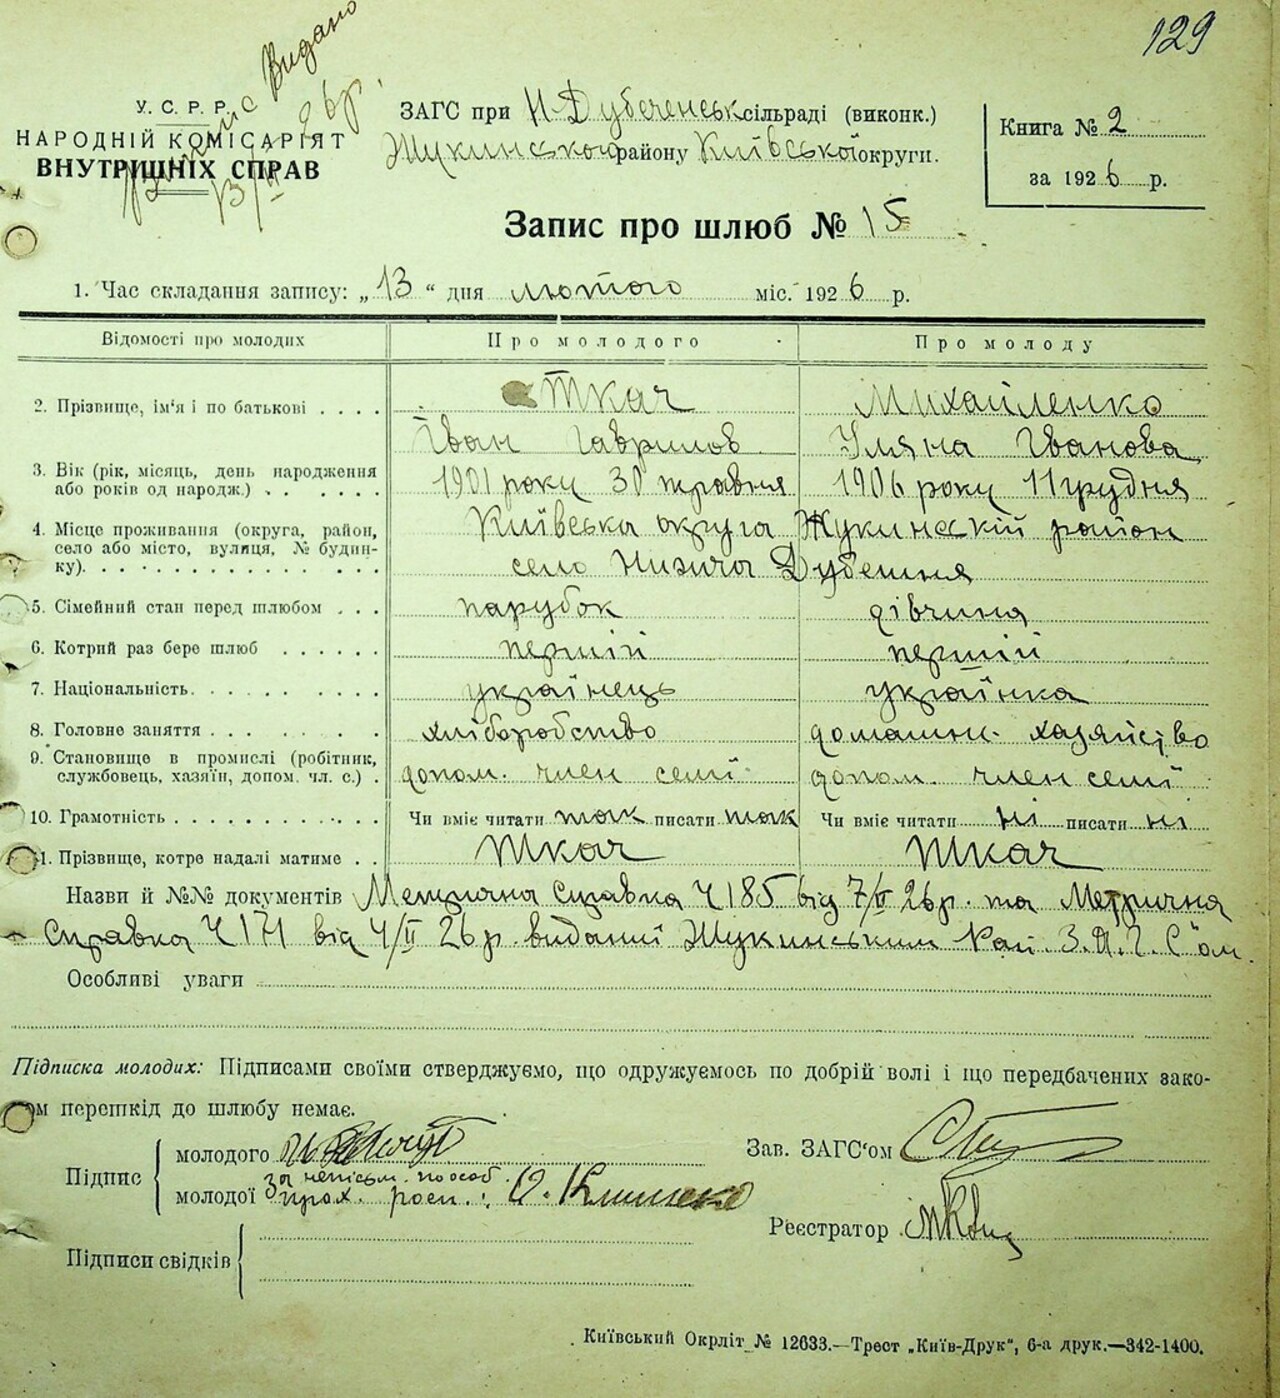 129
Видано
У. С. Р. Р.
НАРОДНІЙ КОМІСАРІЯТ
ВНУТРІШНІХ СПРАВ
ЗАГС при Н-Дубеченськ сільраді (виконк.)
Жукинського району Київської округи.
Книга № 2
за 1926 р.
Запис про шлюб № 15
1. Час складання запису: „13“ дня лютого міс. 1926 р.
Відомості про молодих Про молодого Про молоду
2. Прізвище, ім‘я і по батькові . . . . Ткач Михайленко
Іван Гаврилов Уляна Іванова
3. Вік (рік, місяць, день народження 1901 року 30 травня 1906 року 11 грудня
або років од народж.)
4. Місце проживання (округа, район, Київська округа Жукинскій район
село або місто, вулиця, № будин-
ку). село Нижча Дубешня
5. Сімейний стан перед шлюбом . . . парубок дівчина
6. Котрий раз бере шлюб . . . . . . перший перший
7. Національність. українець українка
8. Головне заняття хліборобство домашн. хазяйство
9. Становище в промислі (робітник,
службовець, хазяїн, допом. чл. с.) . допом. член семї допом. член семї
10. Грамотність Чи вміє читати так писати так Чи вміє читати ні писати ні
11. Прізвище, котре надалі матиме . . Ткач Ткач
Назви й №№ документів Метрична Справка Ч 185 від 7/II 26р. та Метрична
Справка Ч 171 від 4/II 26р. видані Жукинським Рай. З.А.Г.С"ом.
Особливі уваги
Підписка молодих: Підписами своїми стверджуємо, що одружуємось по добрій волі і що передбачених зако-
ом перешкід до шлюбу немає.
Підпис
молодого
Зав. ЗАГС‘ом
за неписьм. по особ.
молодої прох. росп.: О. Клименко
Реєстратор
Підписи свідків
Київський Окрліт № 12633.—Трест „Київ-Друк“, 6-а друк.—342-1400.